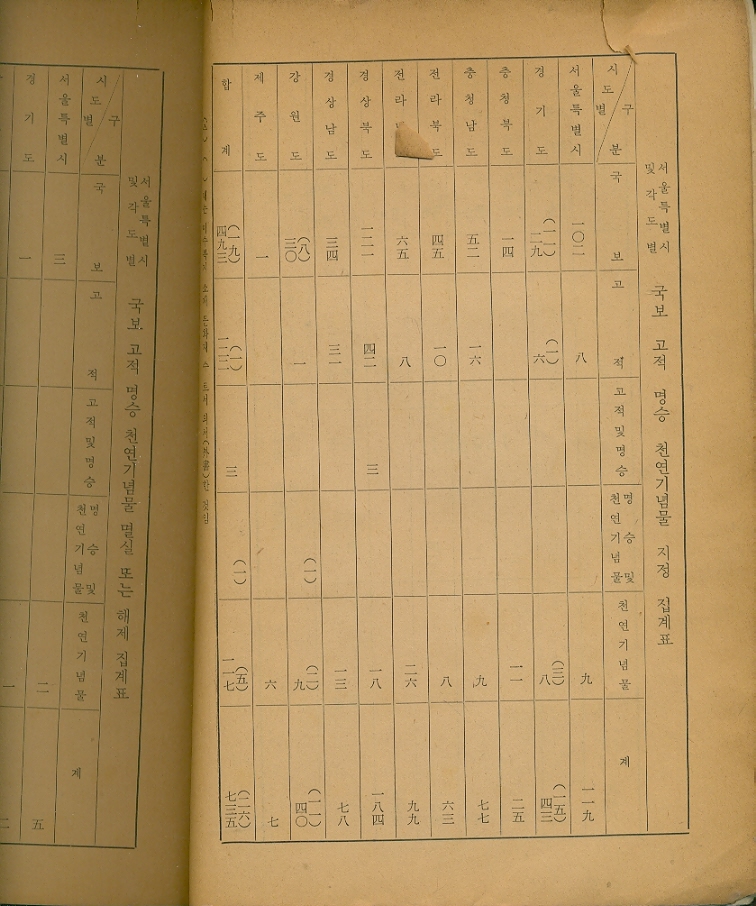 서울특별시 및 각도별 국보 고적 명승 천연기념물 지정 집계표
시도별 구분 국보 고적 고적및명승 명승및천연기념물 천연기념물 계
서울특별시 一〇二 八 九 一一九
경기도 (一一)二九 (一)六 (三)八 (一五)四三
충청북도 一四 一一 二五
충청남도 五二 一六 九 七七
전라북도 四五 一〇 八 六三
전라 도 六五 八 二六 九九
경상북도 一二一 四二 三 一八 一八四
경상남도 三四 三一 一三 七八
강원도 (八)三〇 一 (一) (二)九 (一一)四〇
제주도 一 六 七
합계 (一九)四九三 (一)一二二 三 (一) (五)一一七 (二六)七三五
서울특별시 및 각도별 국보 고적 명승 천연기념물 멸실 또는 해제 집계표
시도별 구분 국보 고적 고적및명승 명승및천연기념물 천연기념물 계
서울특별시 三
경기도 一 二 五